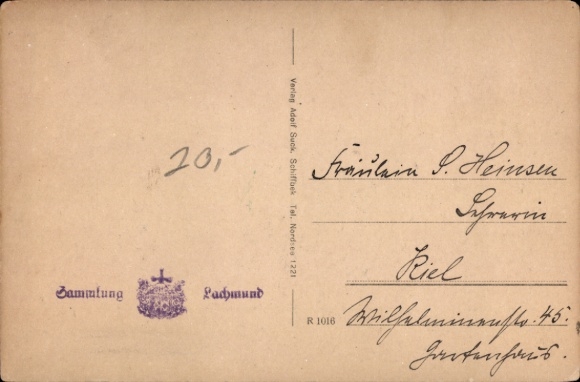 20,-
Sammlung Lachmund
Verlag Adolf Suck, Schiffbek Tel. Nordsee 1221
R 1016
Fräulein S. Heinsen
Lehrerin
Kiel
Wilhelminenstr. 45.
Gartenhaus.